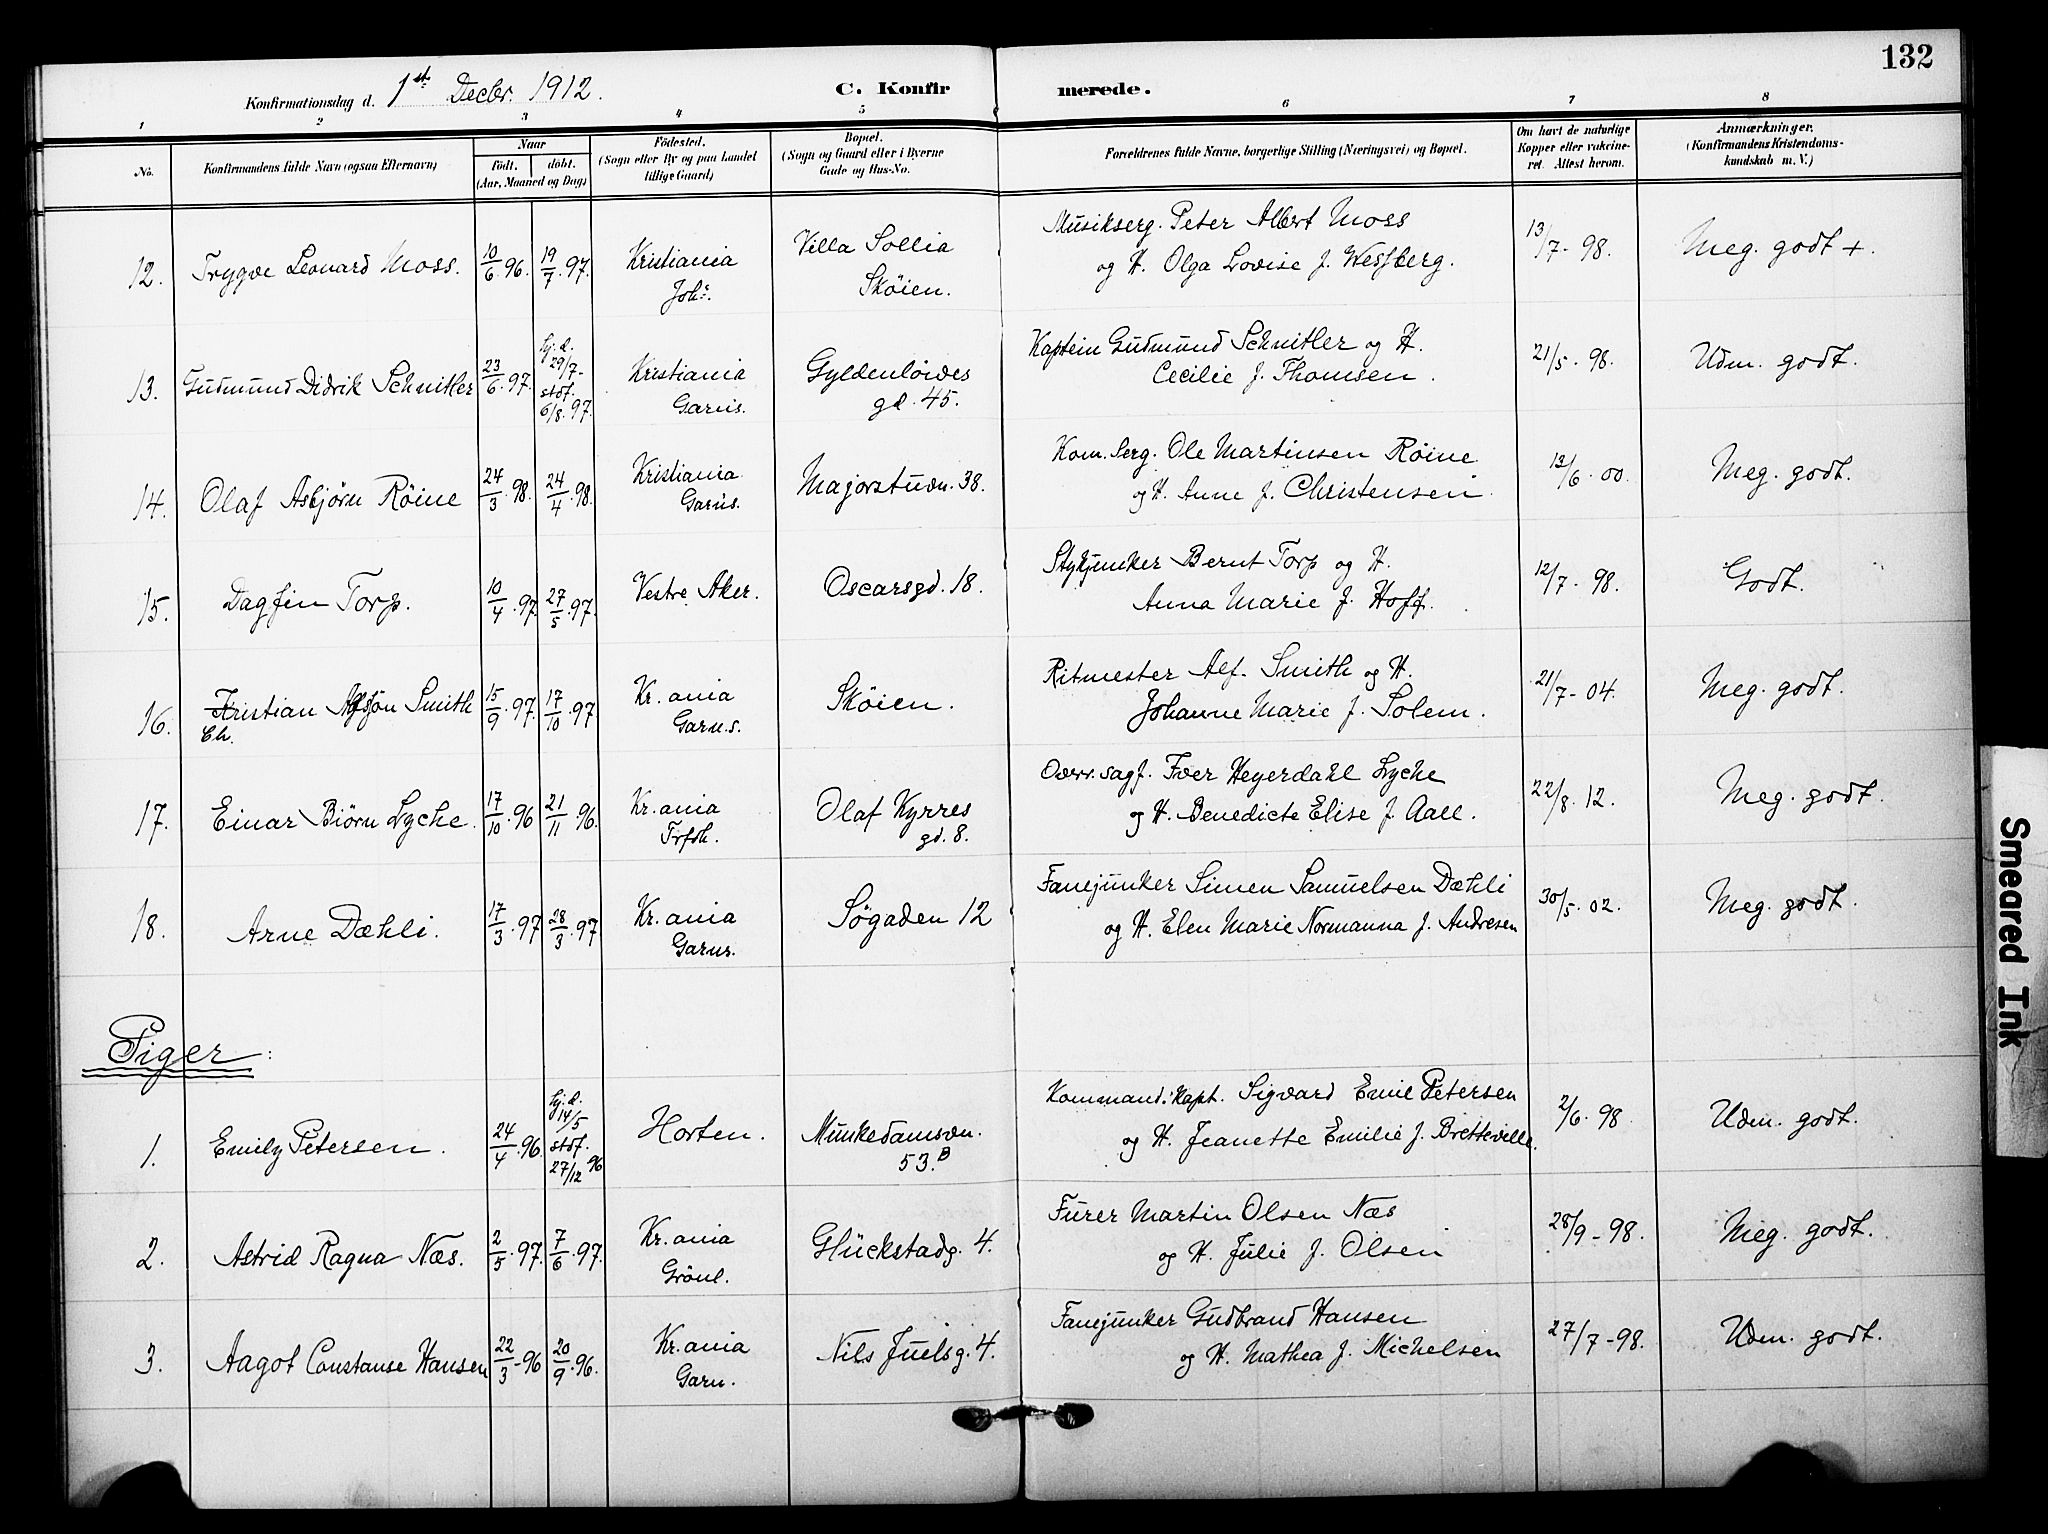 132
Konfirmationsdag d. 1st Decbr. 1912.
C. Konfirmerede.
1 2 3 4 5 6 7 8
No.
Konfirmandens fulde Navn (ogsaa Efternavn)
Naar
født. døbt.
(Aar, Maaned og Dag)
Fødested.
(Sogn eller By og paa Landet
tillige Gaard)
Bopæl.
(Sogn og Gaard eller i Byerne
Gade og Hus-No.
Forældrenes fulde Navne, borgerlige Stilling (Næringsvei) og Bopæl.
Om havt de naturlige
Kopper eller vakcine-
ret. Attest herom.
Anmærkninger.
(Konfirmandens Kristendoms-
kundskab m. V.)
12. Trygve Leonard Moss. 10/6.96. 19/7.97. Kristiania Joh.s. Villa Sollia Skøien.
Musikserg. Peter Albert Moss
og H. Olga Lovise f. Wessberg. 13/7-98. Meg. godt +.
13. Gudmund Didrik Schnitler 23/6.97. hj.d. 29/7- stdf. 6/8.97. Kristiania Garns. Gyldenløves gd. 45.
Kaptein Gudmund Schnitler og H.
Cecilie f. Thomsen. 21/5-98. Udm. godt.
14. Olaf Asbjørn Röine 24/3.98. 24/4.98. Kristiania Garns. Majorstuvn. 38.
Kom. Serg. Ole Martinsen Röine
og H. Anne f. Christensen. 13/6.00. Meg. godt.
15. Dagfin Torp. 10/4.97. 27/5.97. Vestre Aker. Oscarsgd. 18.
Stykjunker Bernt Torp og H.
Anna Marie f. Hoff. 12/7-98. Godt.
16. Kristian Smith
Ch. 15/9.97. 17/10.97 Kr.ania Garns. Skøien.
Ritmester Alf. Smith og H.
Johanne Marie f. Solem. 21/7-04. Meg. godt.
17. Einar Biörn Lyche. 17/10.96 21/11.96. Kr.ania Trfdh. Olaf Kyrres gd. 8.
Overr.sagf. Iver Heyerdahl Lyche
og H. Benedicte Elise f. Aall. 22/8.12. Meg. godt.
18. Arne Dæhli. 17/3.97 28/3.97 Kr.ania Garns. Søgaden 12
Fanejunker Simen Samuelsen Dæhli
og H. Elen Marie Normanna f. Andresen 30/5.02. Meg. godt.
Piger:
1. Emily Petersen. 24/4.96. hj.d. 14/5 stdf. 27/12 96 Horten. Munkedamsvn. 53.B
Kommand.Kapt. Sigvard Emil Petersen
og H. Jeanette Emilie f. Bretteville. 2/6.98. Udm. godt.
2. Astrid Ragna Næs. 2/5.97. 7/6.97. Kr.ania Grönl. Glückstadg. 4.
Furer Martin Olsen Næs
og H. Julie f. Olsen 28/9-98. Meg. godt.
3. Aagot Constanse Hansen 22/3-96 20/9.96. Kr.ania Garn. Nils Juelsg. 4.
Fanejunker Gudbrand Hansen
og H. Mathea f. Michelsen 27/7-98. Udm. godt.
Smeared Ink